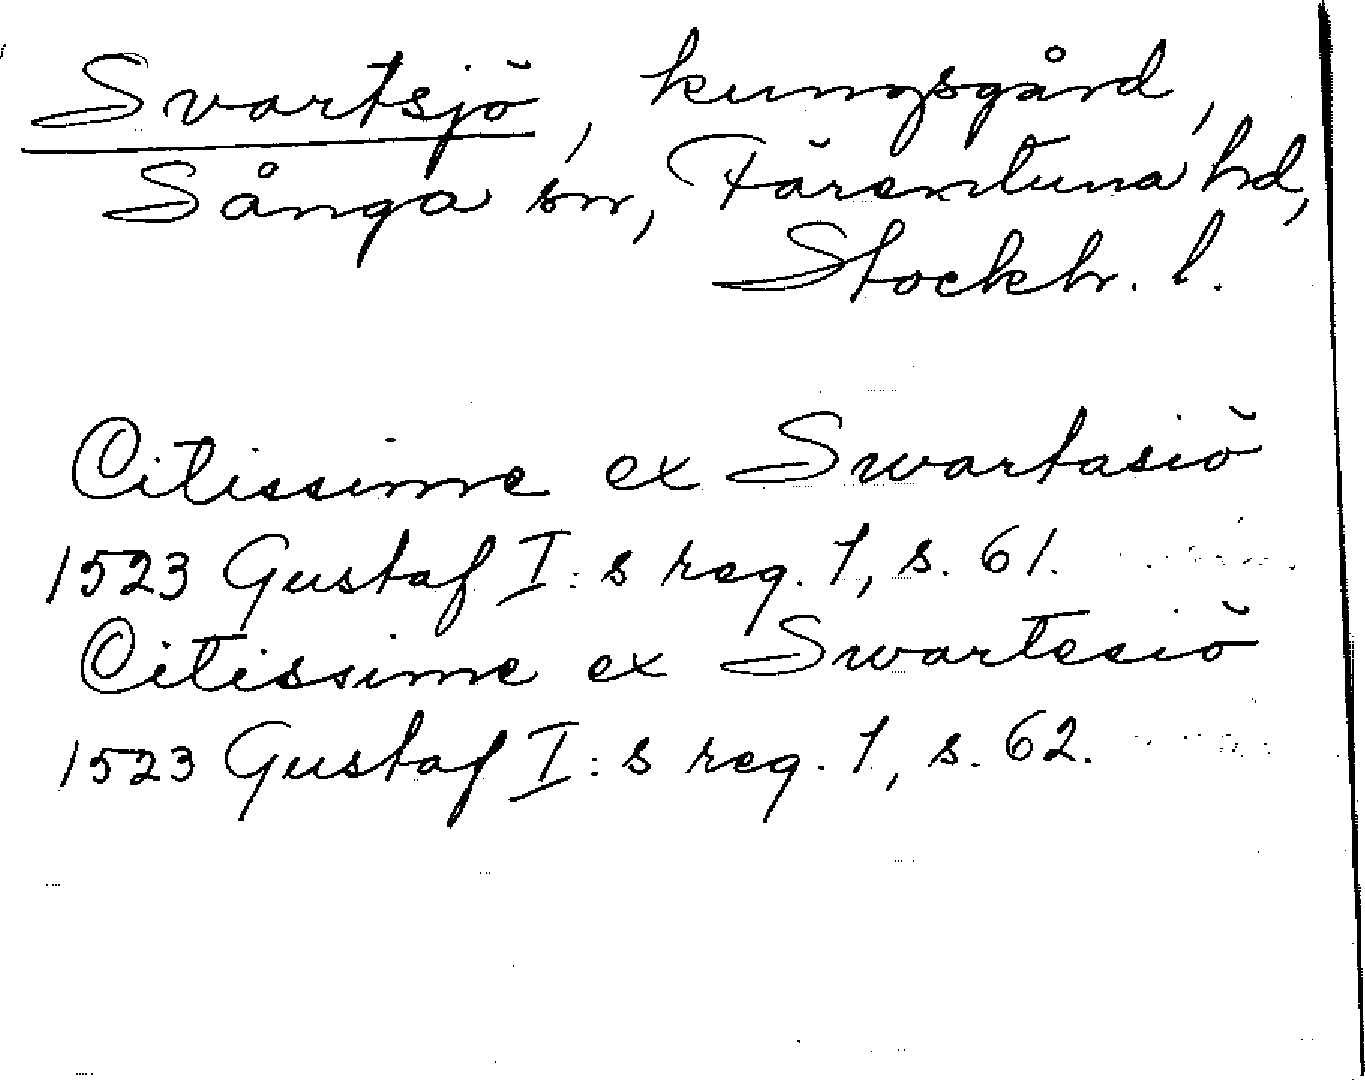 Svartsjö, kungsgård,
Sånga sn, Färentuna hd,
Stockh. l.
Citissime ex Swartasiö
1523 Gustaf I:s reg. 1, s. 61.
Citissime ex Swartesiö
1523 Gustaf I:s reg. 1, s. 62.